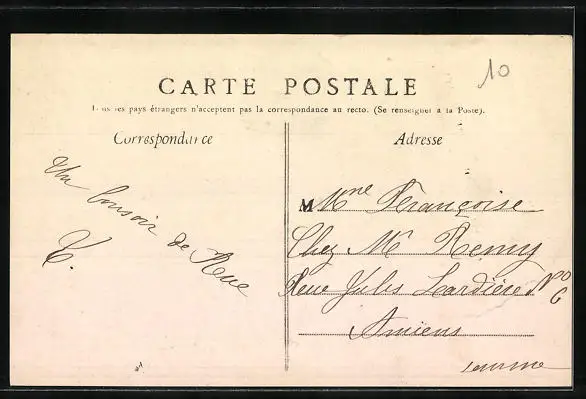 10
CARTE POSTALE
Tous les pays étrangers n'acceptent pas la correspondance au recto. (Se renseigner à la Poste).
Correspondance
Adresse
Un bonsoir de Rue
M Mme Françoise
Chez Mr Remy
Rue Jules Lardière No 6
Amiens
Somme